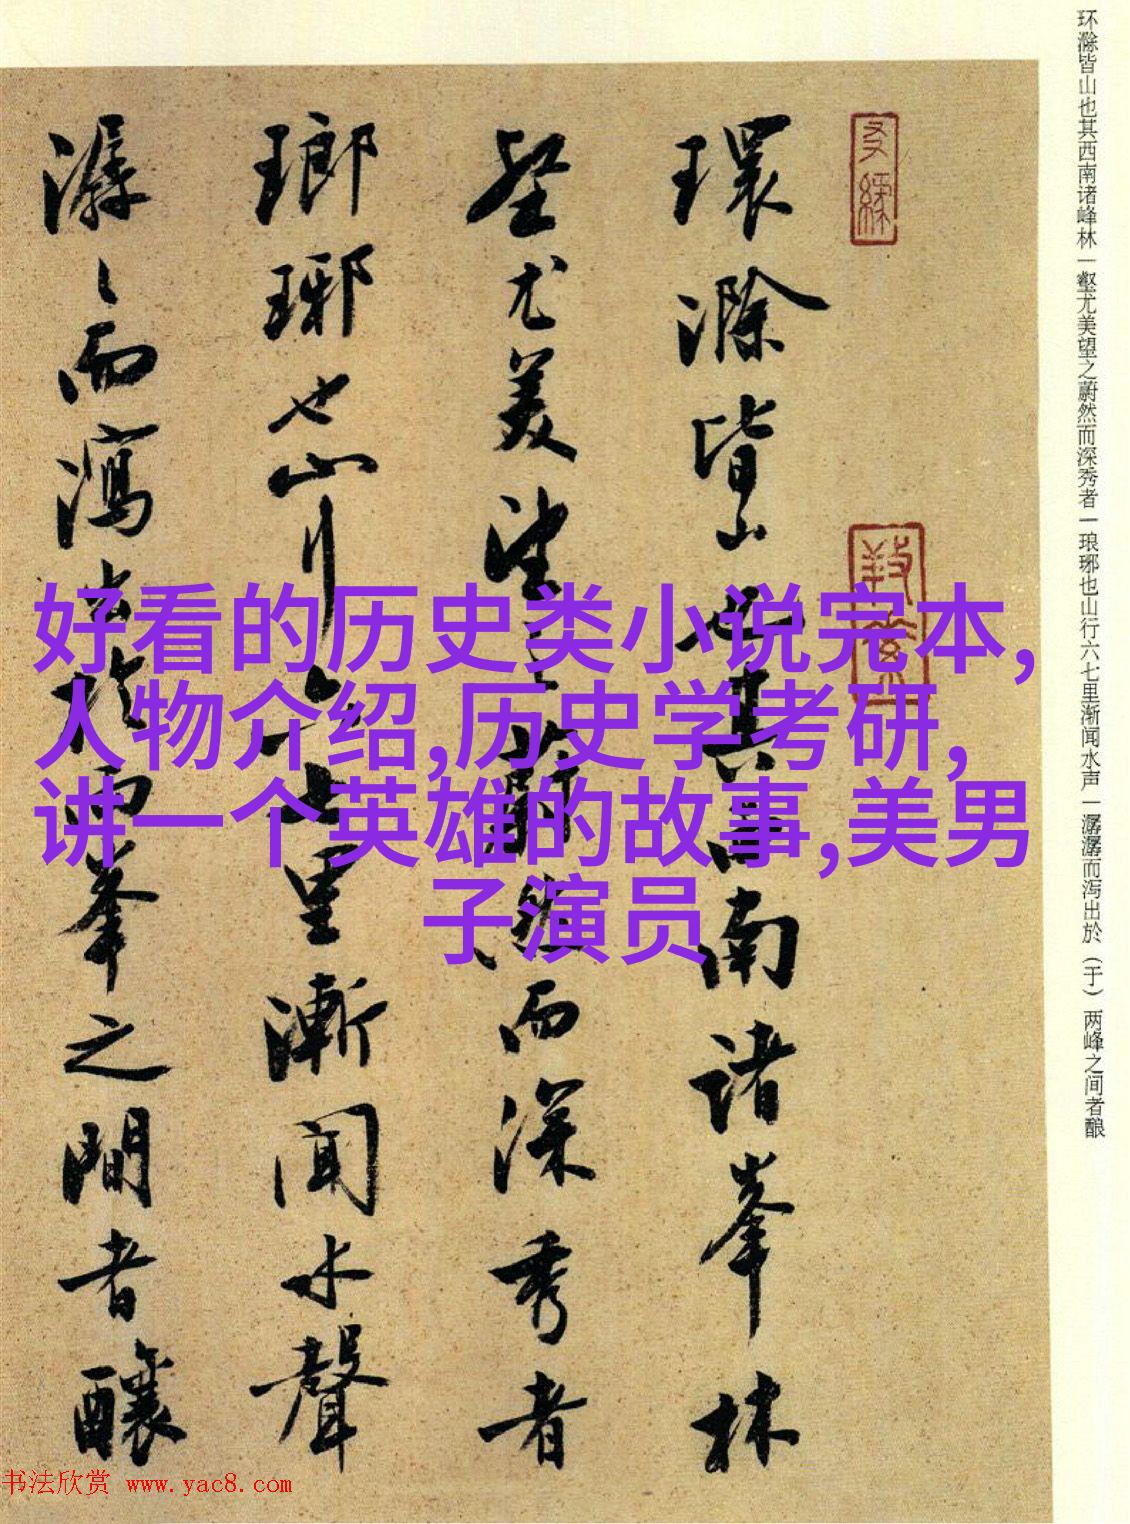 环滁皆山也其西南诸峰林一壑尤美望之蔚然而深秀者一琅琊也山行六七里渐闻水声一潺潺而泻出於（于）两峰之间者酿
環滁皆山也其西南诸峯林
壑尤美望之蔚然而深秀者
瑯琊也山行六七里漸聞水聲
潺々而瀉出於兩峯之間者釀
好看的历史类小说完本,
人物介绍,历史学考研,
讲一个英雄的故事,美男
子演员
书法欣赏 www.yac8.com